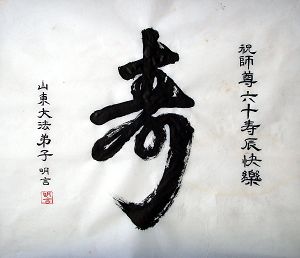 祝師尊六十寿辰快樂
寿
山東大法弟子 明言
明言